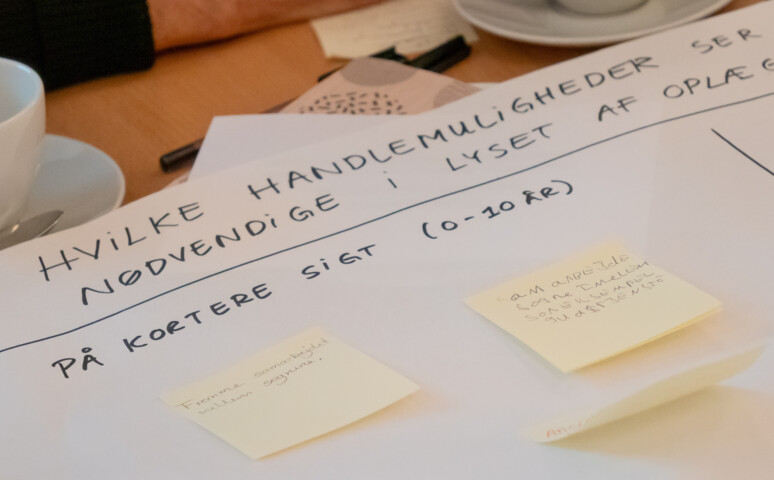 HVILKE HANDLEMULIGHEDER SER
NØDVENDIGE I LYSET AF OPLÆG
PÅ KORTERE SIGT (0-10 ÅR)
Fremme samarbejdet
mellem sognene.
SAMARBEJDE
SOGNE IMELLEM